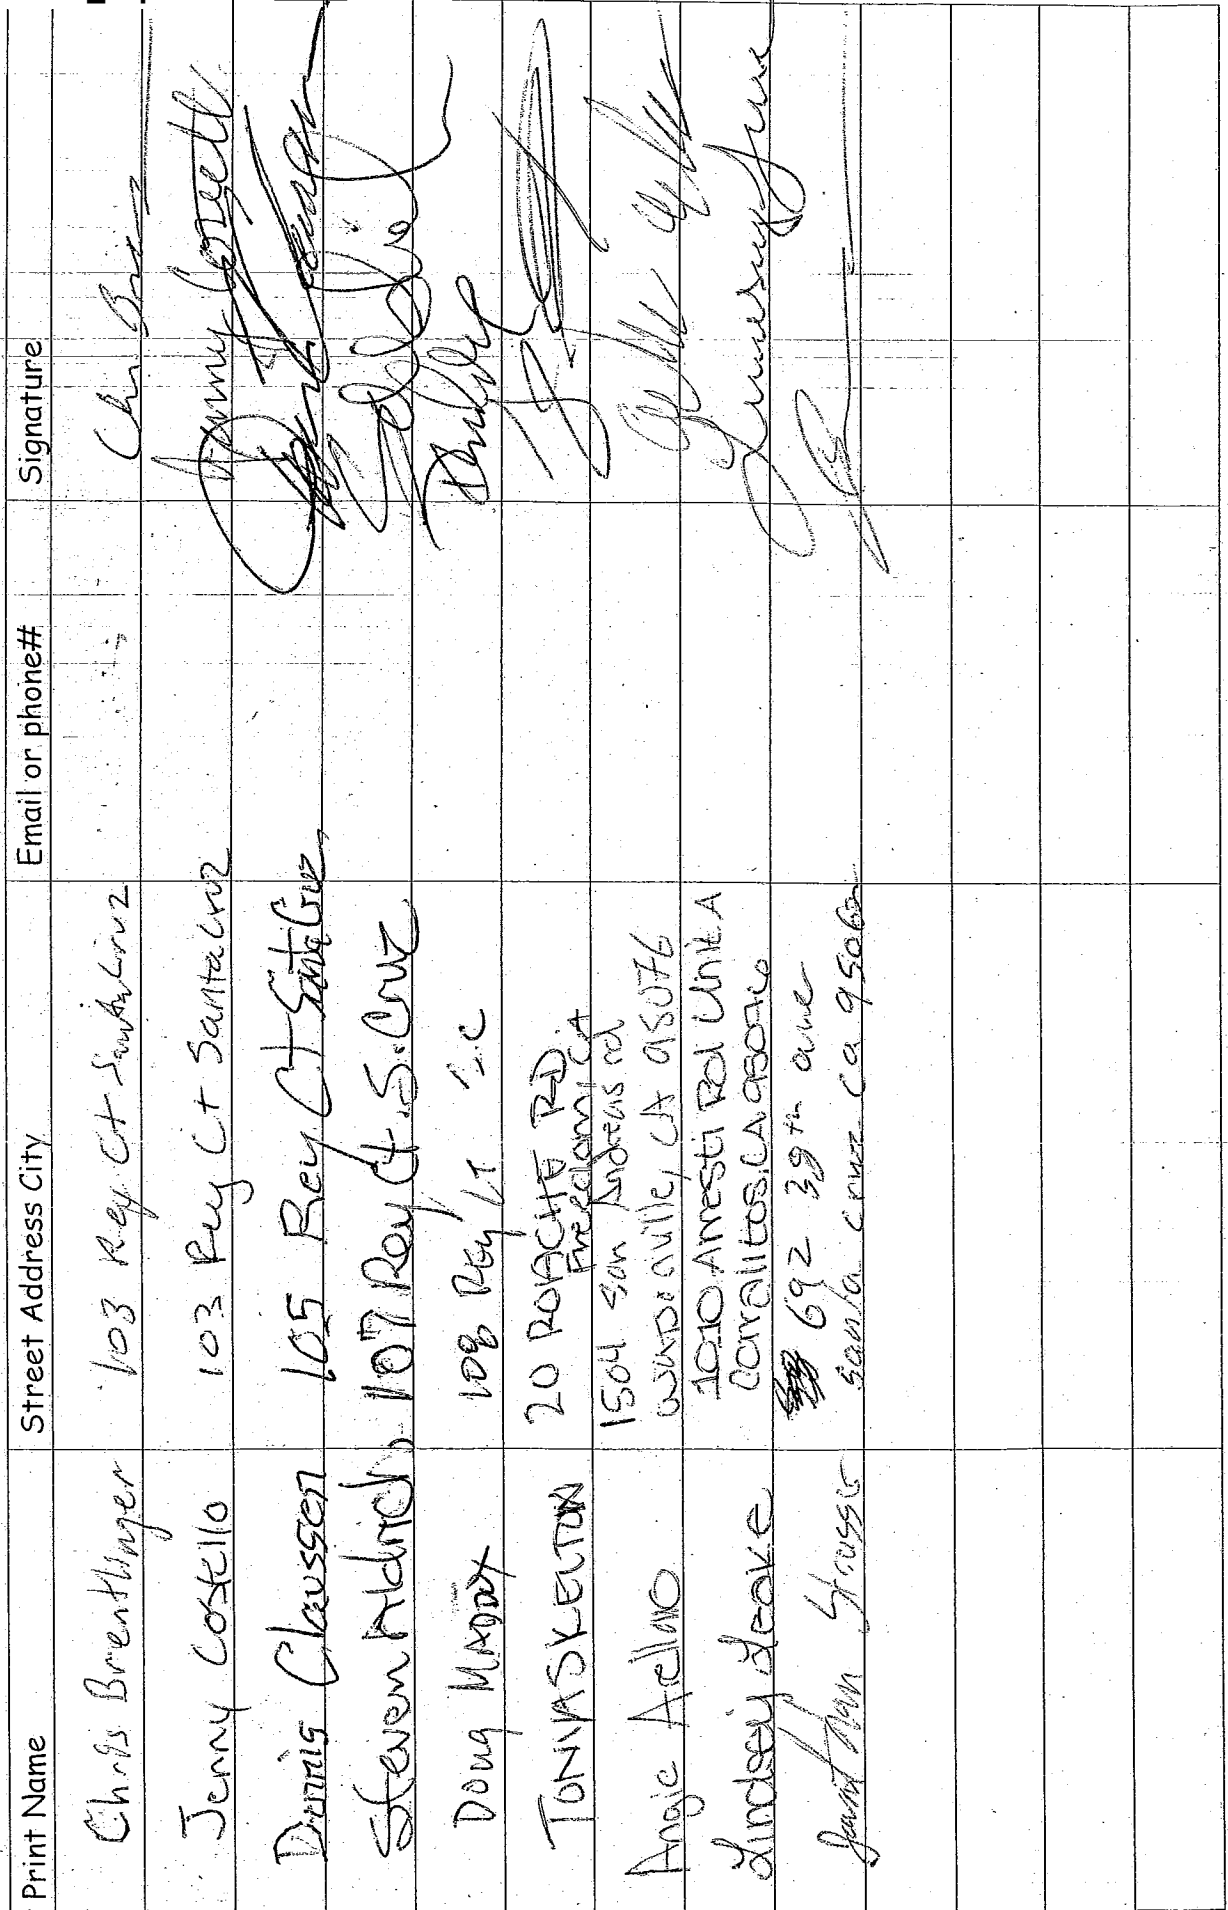 Print Name Street Address City Email or phone# Signature
Chris Brenthinger 103 Rey Ct Santa Cruz
Jenny Costello 103 Rey Ct Santa Cruz Jenny Costello
Dennis Claussen 105 Rey Ct Santa Cruz
Steven Aldrich 107 Rey Ct. S. Cruz
Doug Maddox 108 Rey CT S.C
TONYA SKELTON 20 ROACHE RD.
Freedom, CA
Angie Arellano 1504 San Andreas rd
watsonville, CA 95076
Lindsey Leake 1010 Amesti Rd Unit A
Corralitos, CA 95076
692 38th ave
santa cruz ca